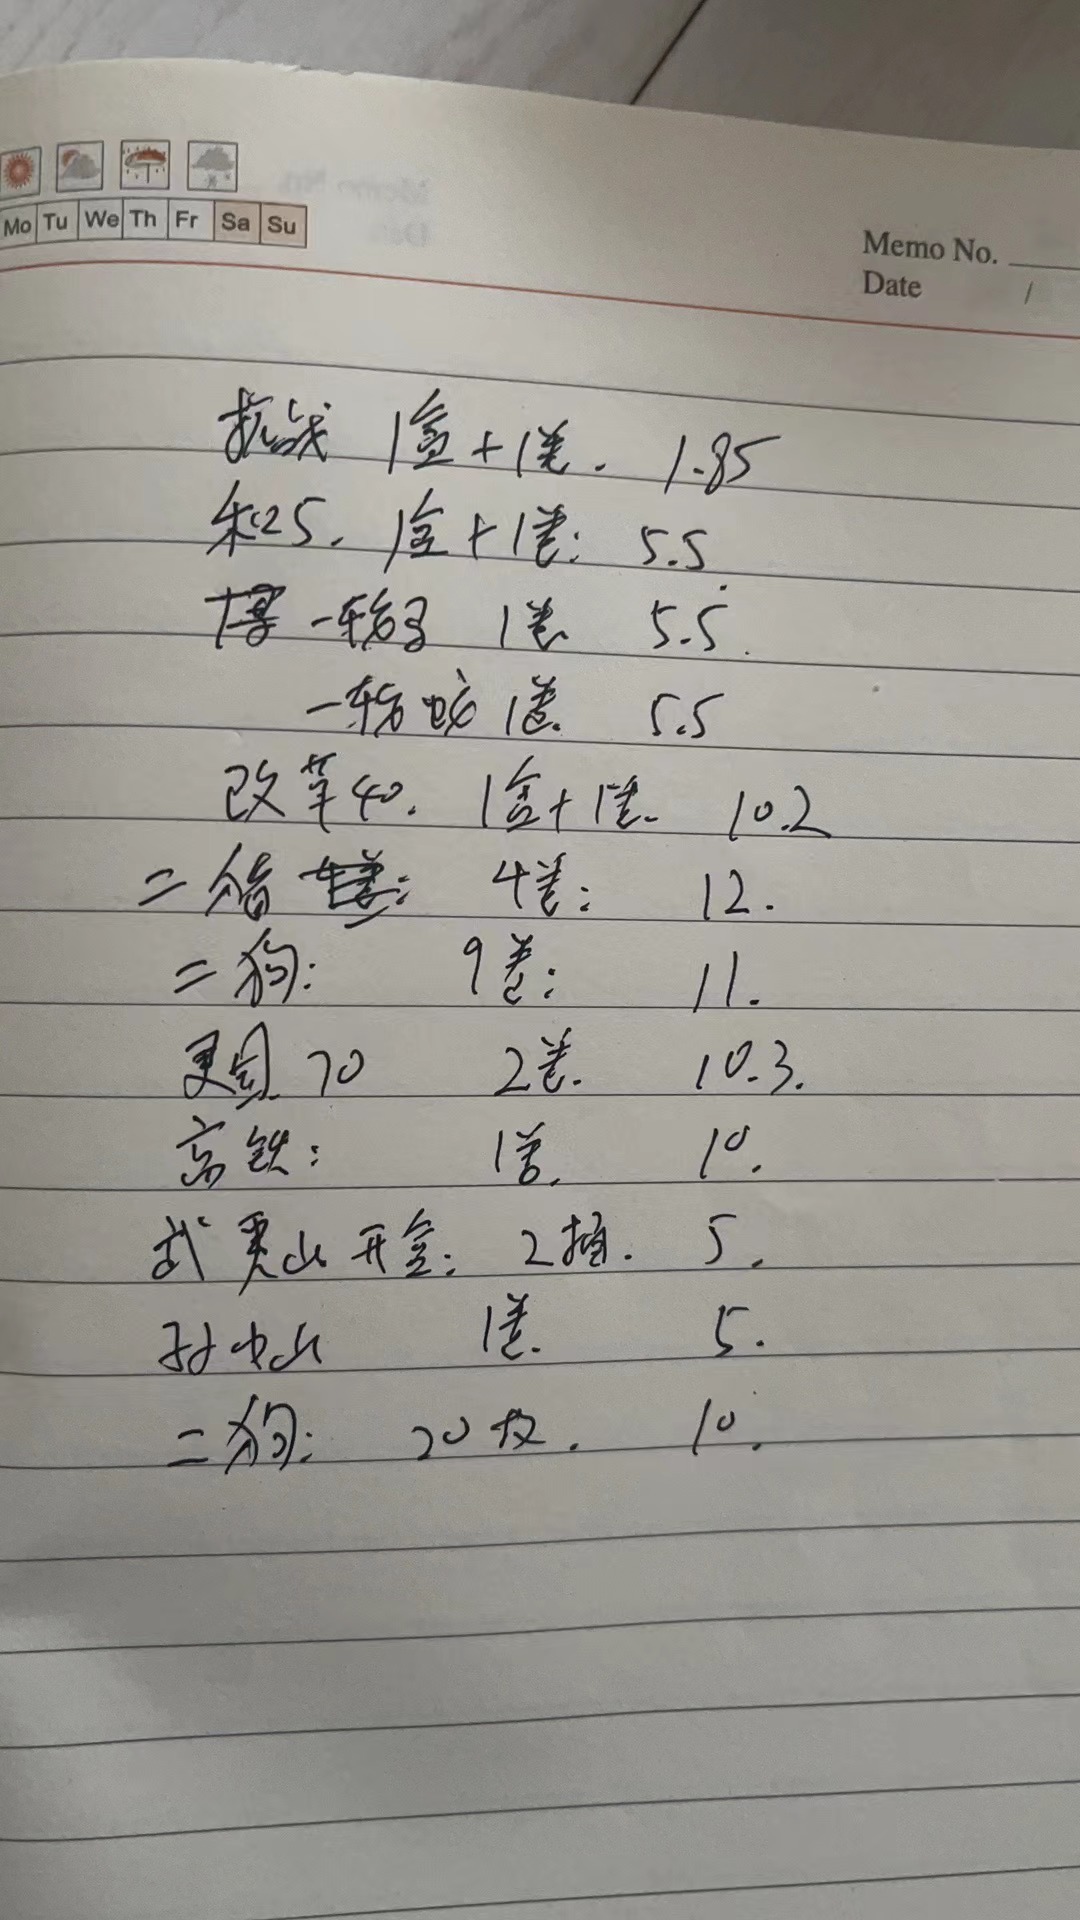 Mo Tu We Th Fr Sa Su
Memo No.
Date /
抗战 1盒+1卷. 1.85
和25. 1盒+1卷: 5.5.
一轮 1卷 5.5.
一轮蛇 1卷. 5.5
改革40. 1盒+1卷. 10.2
二猪 : 4卷: 12.
二狗: 9卷: 11.
70 2卷. 10.3.
高铁: 1卷. 10.
武夷山开盒: 2插. 5.
孙中山 1卷. 5.
二狗: 20枚. 10.